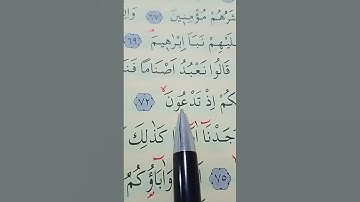 ثَرُهُمْ مُؤْمِنٖينَ ﴿٦٧﴾ وَاِ
لَيْهِمْ نَبَاَ اِبْرٰهٖيمَۢ ﴿٦٩﴾
قَالُوا نَعْبُدُ اَصْنَامًا فَنَ
كُمْ اِذْ تَدْعُونَۙ ﴿٧٢﴾
جَدْنَٓا كَذٰلِكَ
﴿٧٥﴾ وَاٰبَٓاؤُكُمُ